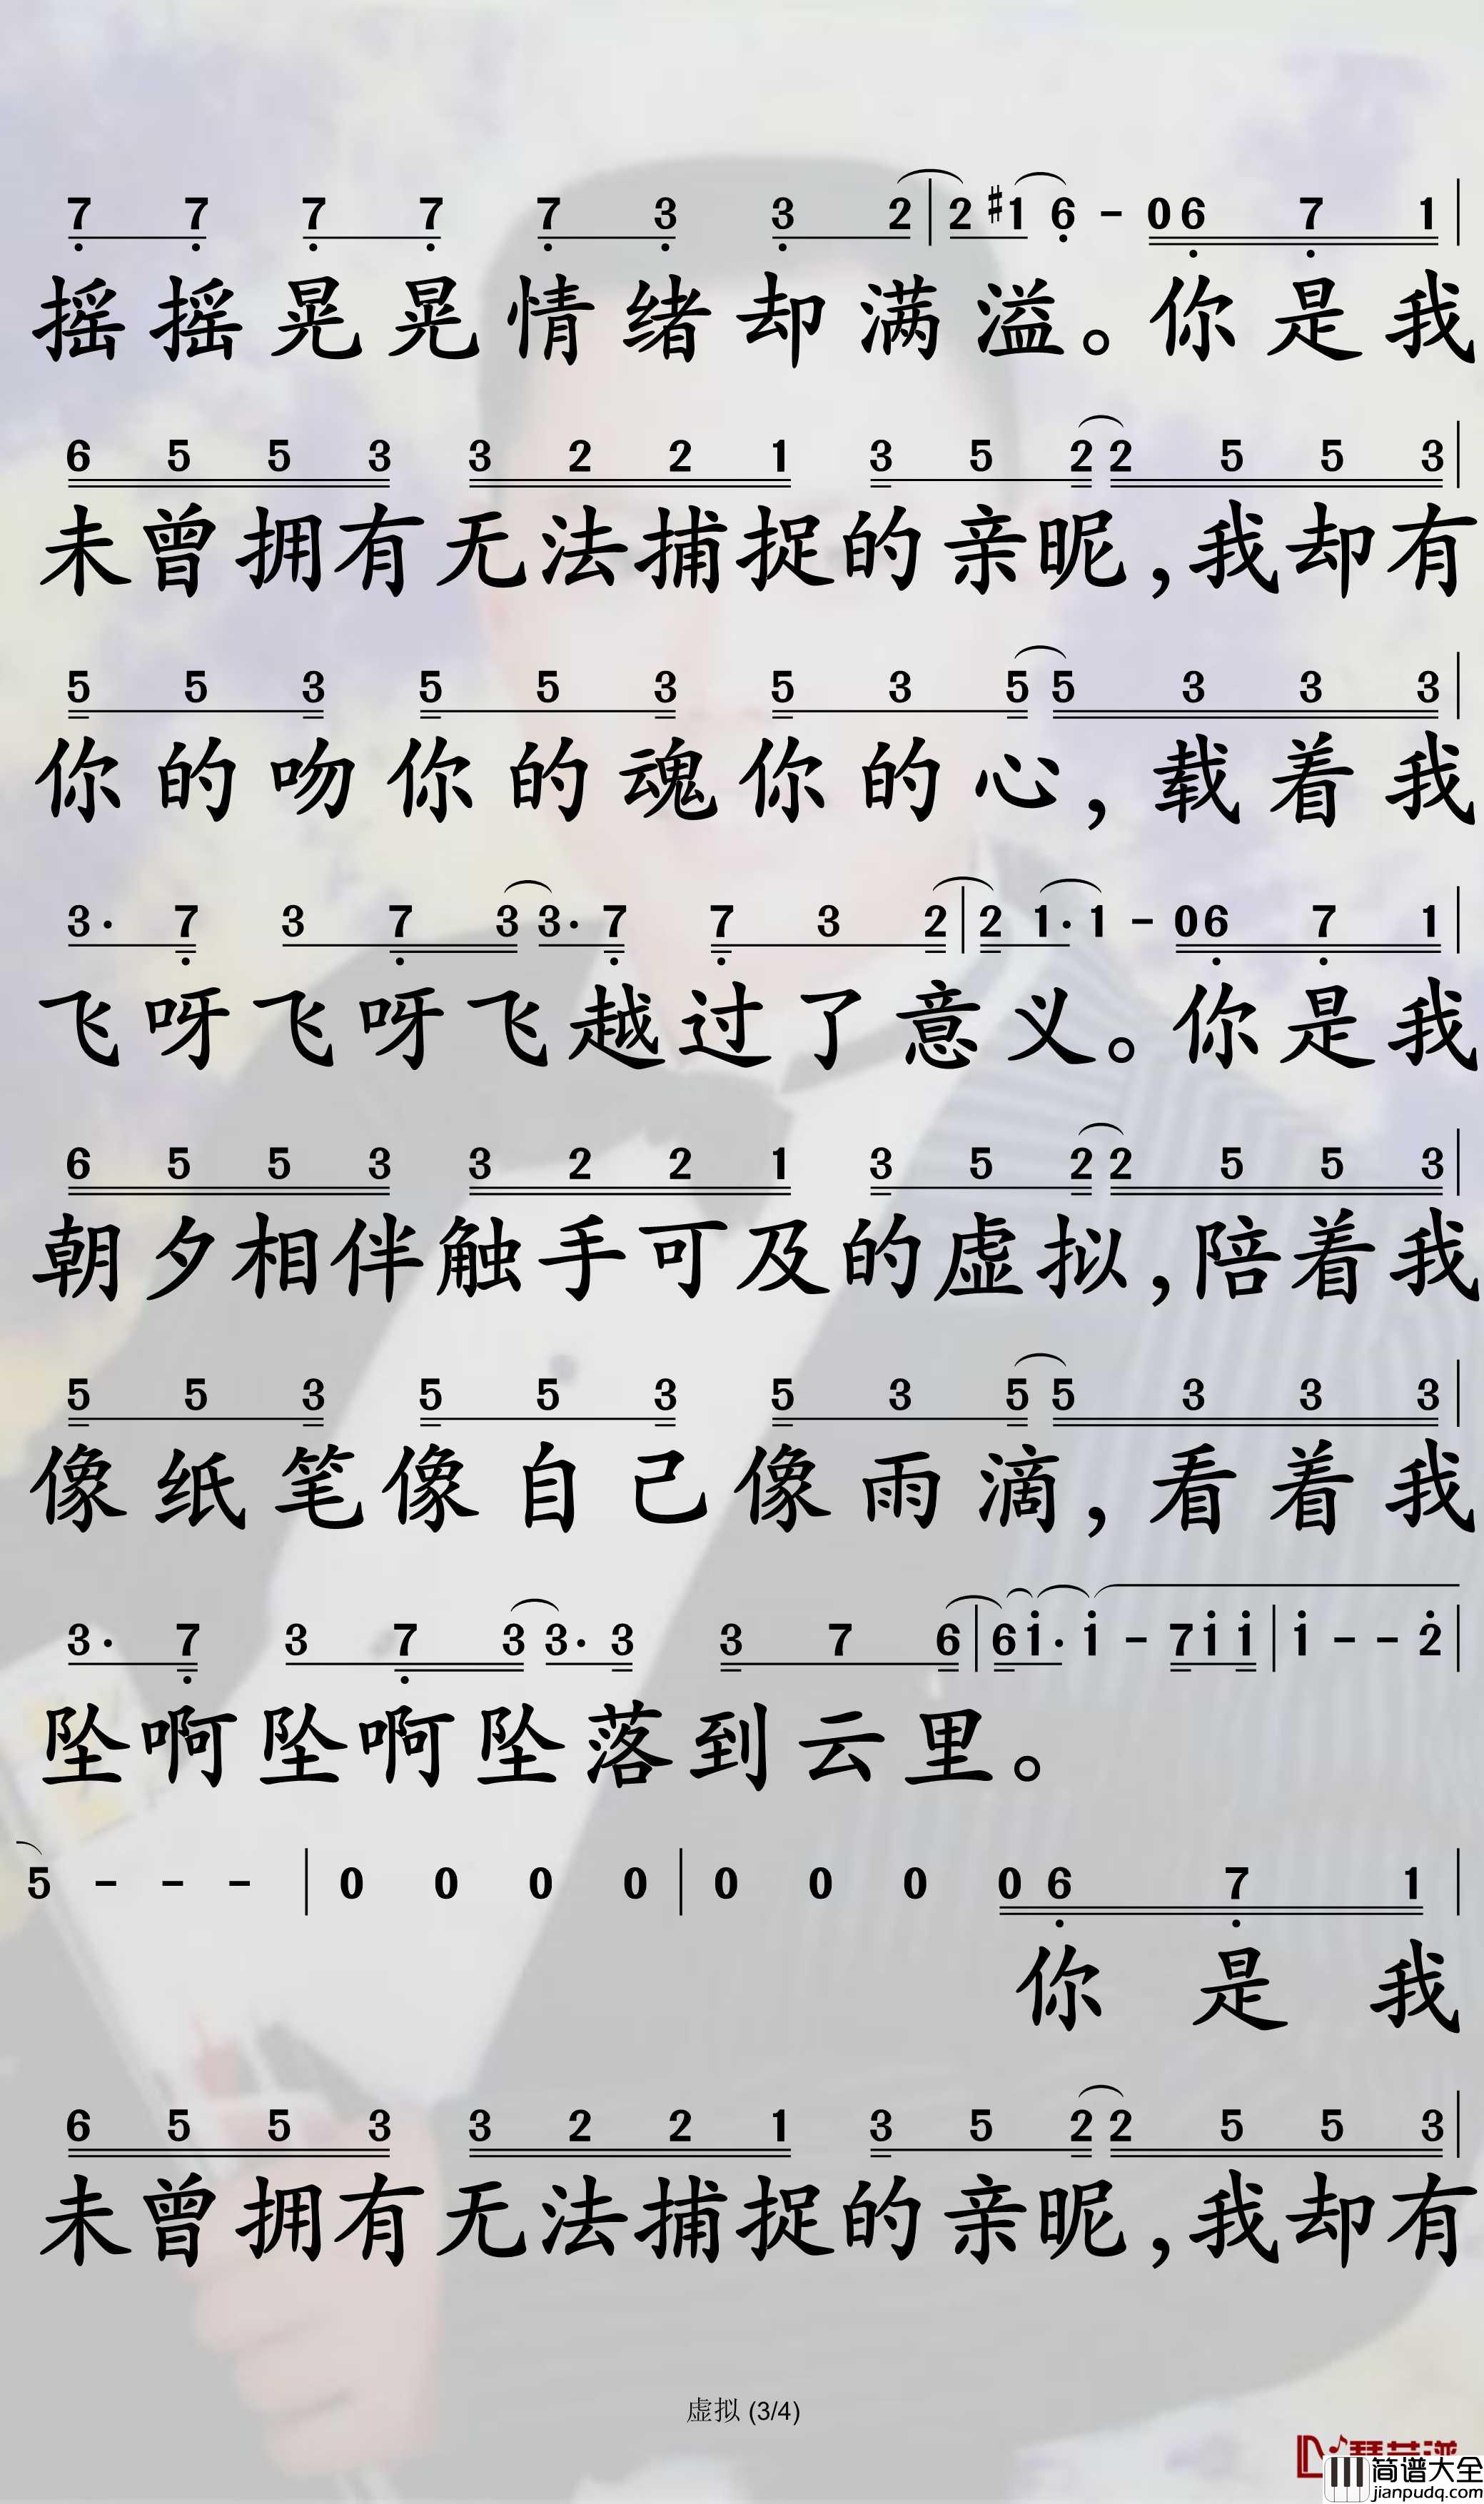 7 7 7 7 7 3 3 2 | 2 #1 6 - 0 6 7 1 |
摇摇晃晃情绪却满溢。你是我
6 5 5 3 3 2 2 1 3 5 2 2 5 5 3 |
未曾拥有无法捕捉的亲昵,我却有
5 5 3 5 5 3 5 3 5 5 3 3 3 |
你的吻你的魂你的心,载着我
3· 7 3 7 3 3· 7 7 3 2 | 2 1· 1 - 0 6 7 1 |
飞呀飞呀飞越过了意义。你是我
6 5 5 3 3 2 2 1 3 5 2 2 5 5 3 |
朝夕相伴触手可及的虚拟,陪着我
5 5 3 5 5 3 5 3 5 5 3 3 3 |
像纸笔像自己像雨滴,看着我
3· 7 3 7 3 3· 3 3 7 6 | 6 1· 1 - 7 1 1 | 1 - - 2 |
坠啊坠啊坠落到云里。
5 - - - | 0 0 0 0 | 0 0 0 0 6 7 1 |
你是我
6 5 5 3 3 2 2 1 3 5 2 2 5 5 3 |
未曾拥有无法捕捉的亲昵,我却有
虚拟 (3/4)
简谱大全
jianpudq.com